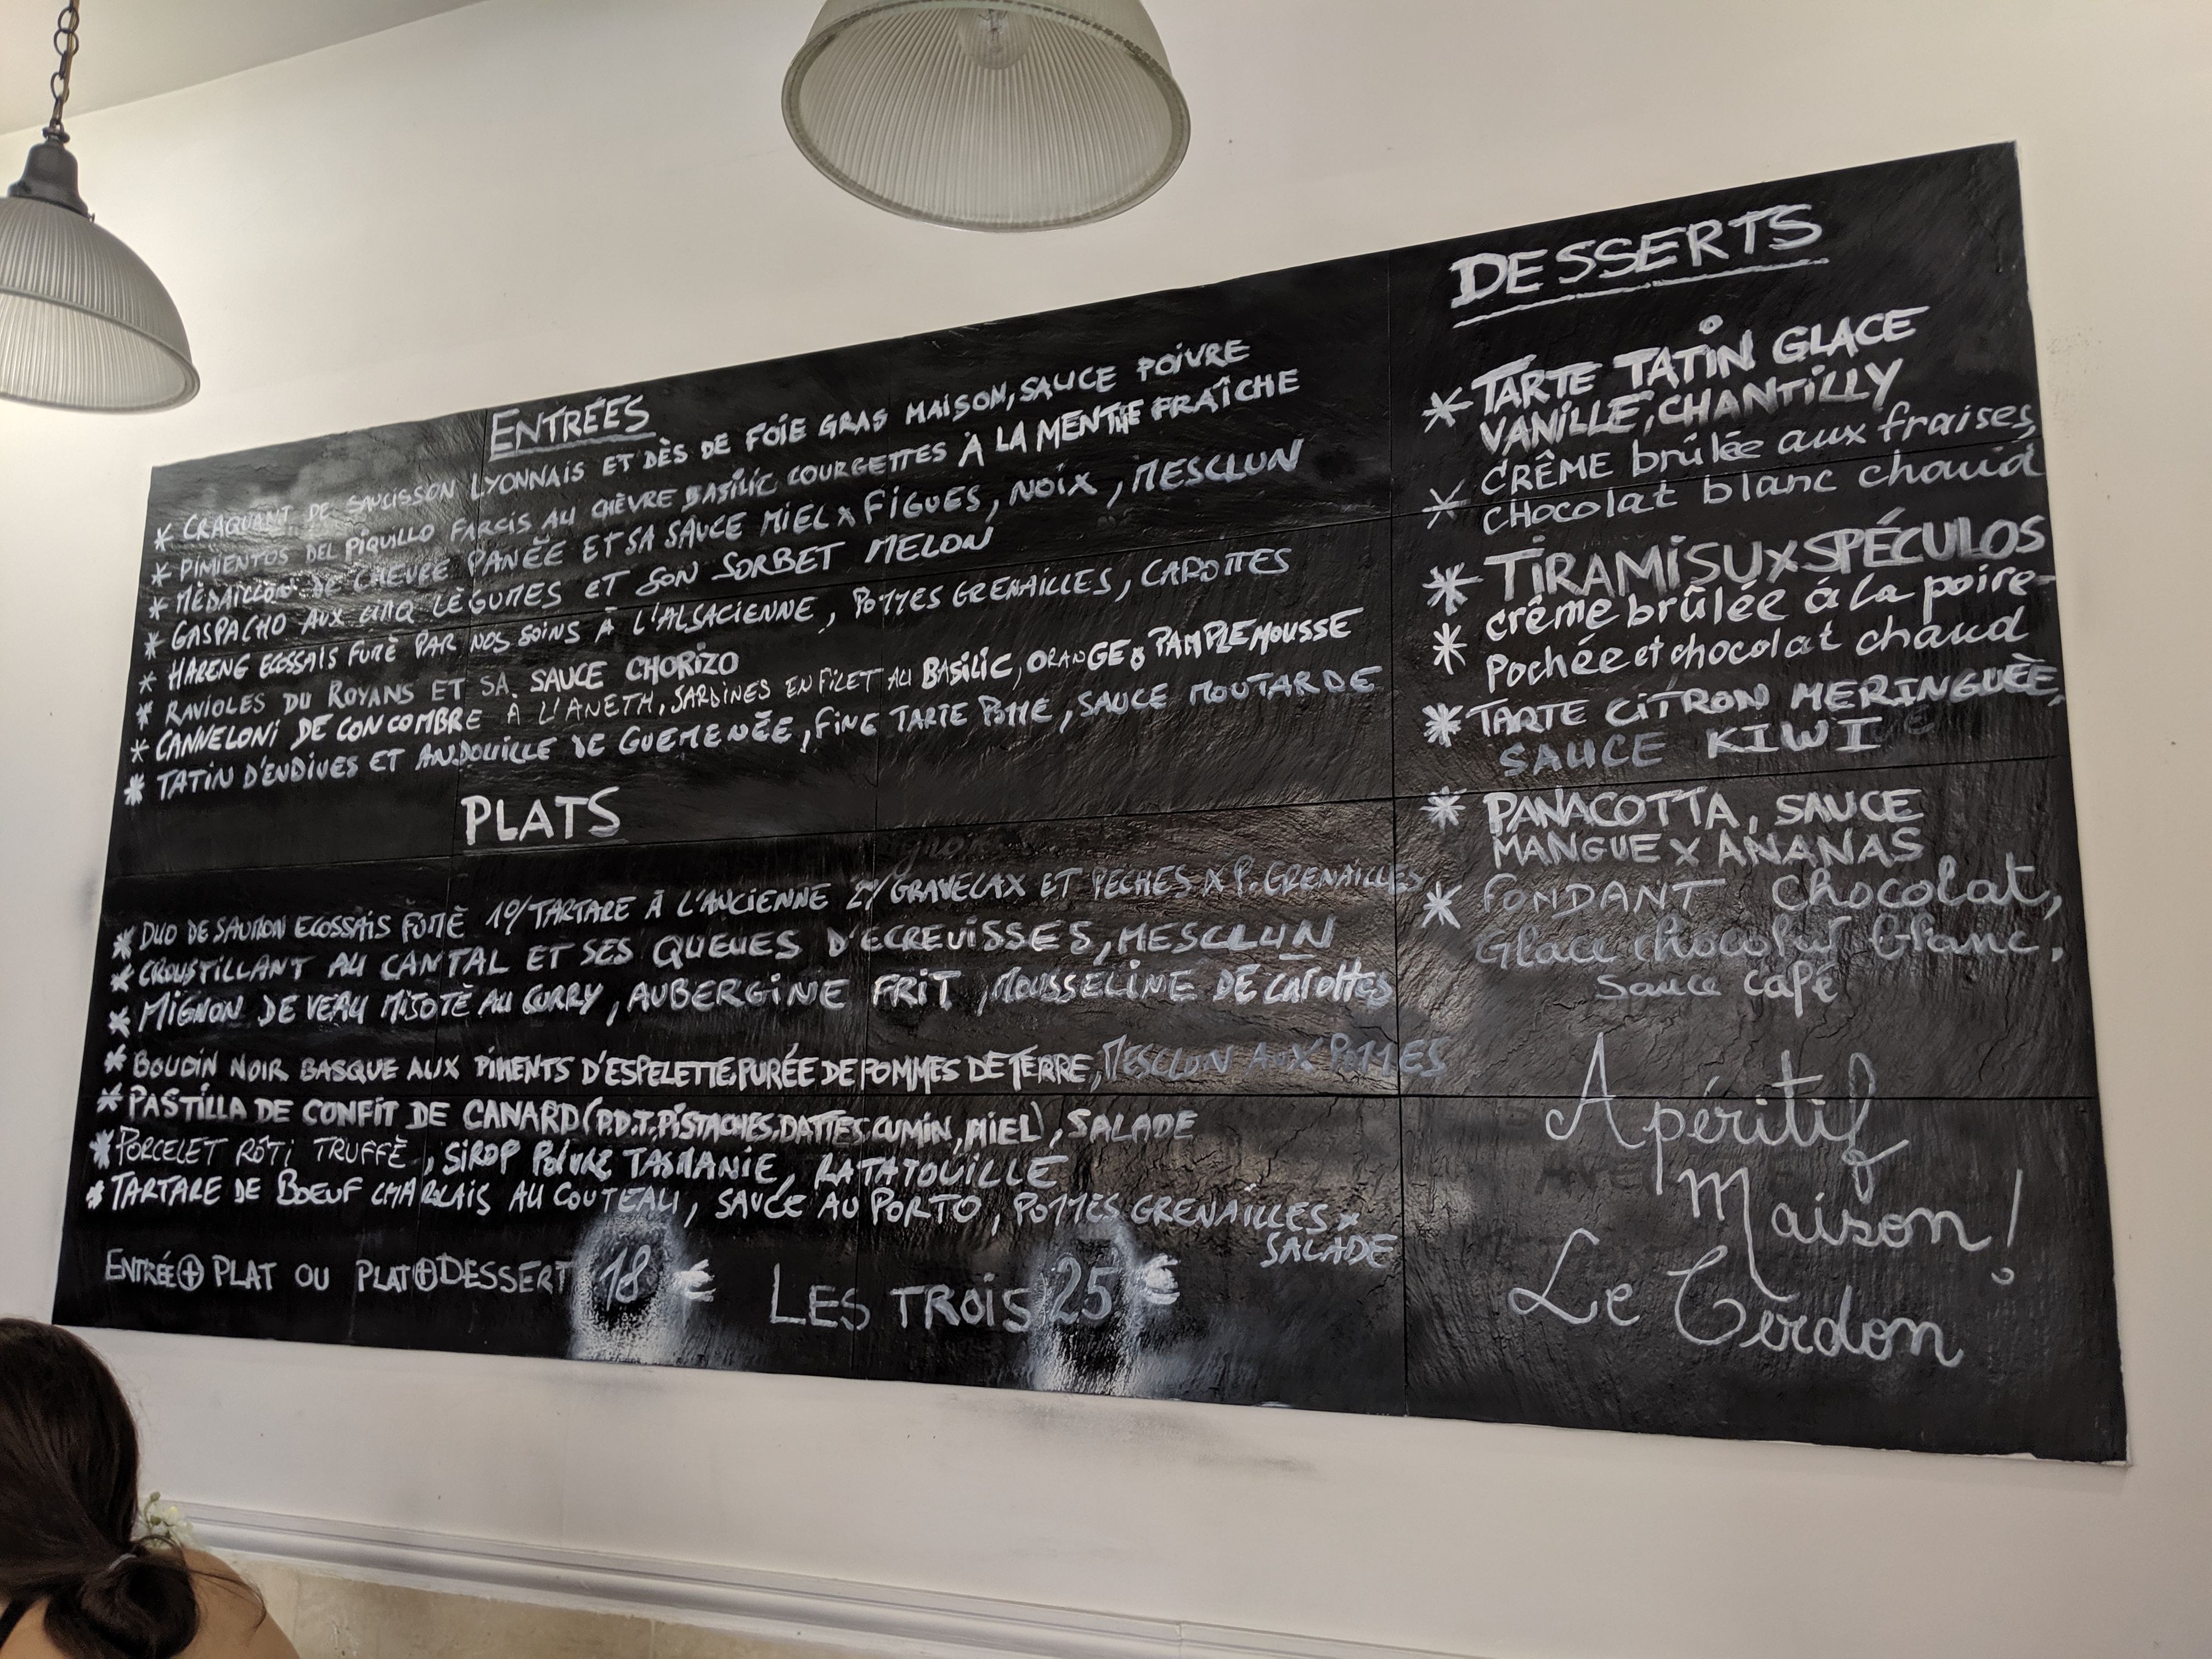 ENTRÉES
* CRAQUANT DE SAUCISSON LYONNAIS ET DÈS DE FOIE GRAS MAISON, SAUCE POIVRE
* PIMIENTOS DEL PIQUILLO FARCIS AU CHÈVRE BASILIC COURGETTES À LA MENTHE FRAÎCHE
* MÉDAILLON DE CHEVRE PANÉE ET SA SAUCE MIEL x FIGUES, NOIX, MESCLUN
* GASPACHO AUX CINQ LÉGUMES ET SON SORBET MELON
* HARENG ECOSSAIS FUMÉ PAR NOS SOINS À L'ALSACIENNE, POMMES GRENAILLES, CAROTTES
* RAVIOLES DU ROYANS ET SA SAUCE CHORIZO
* CANNELONI DE CONCOMBRE À L'ANETH, SARDINES EN FILET AU BASILIC, ORANGE & PAMPLEMOUSSE
* TATIN D'ENDIVES ET ANDOUILLE DE GUEMENÉE, FINE TARTE POMME, SAUCE MOUTARDE
PLATS
* DUO DE SAUMON ECOSSAIS FUMÈ 1°/ TARTARE À L'ANCIENNE 2°/ GRAVELAX ET PECHES x P. GRENAILLES
* CROUSTILLANT AU CANTAL ET SES QUEUES D'ECREVISSES, MESCLUN
* MIGNON DE VEAU MIJOTÈ AU CURRY, AUBERGINE FRIT, MOUSSELINE DE CAROTTES
* BOUDIN NOIR BASQUE AUX PIMENTS D'ESPELETTE, PURÉE DE POMMES DE TERRE, MESCLUN AUX POMMES
* PASTILLA DE CONFIT DE CANARD (P.D.T, PISTACHES, DATTES, CUMIN, MIEL), SALADE
* PORCELET RÔTI TRUFFÈ, SIROP POIVRE TASMANIE, RATATOUILLE
* TARTARE DE BOEUF CHAROLAIS AU COUTEAU, SAUCE AU PORTO, POMMES GRENAILLES x
SALADE
ENTRÉE + PLAT OU PLAT + DESSERT 18 € LES TROIS 25 €
DESSERTS
* TARTE TATIN GLACE
VANILLE, CHANTILLY
* CRÊME brûlée aux fraises,
CHocolat blanc chaud
* TIRAMISU x SPÉCULOS
* crême brûlée à la poire
Pochée et chocolat chaud
* TARTE CITRON MERINGUÈE,
SAUCE KIWI
* PANACOTTA, SAUCE
MANGUE x ANANAS
* FONDANT Chocolat,
Glace chocolat blanc,
Sauce Café
Apéritif
Maison!
Le Cerdon